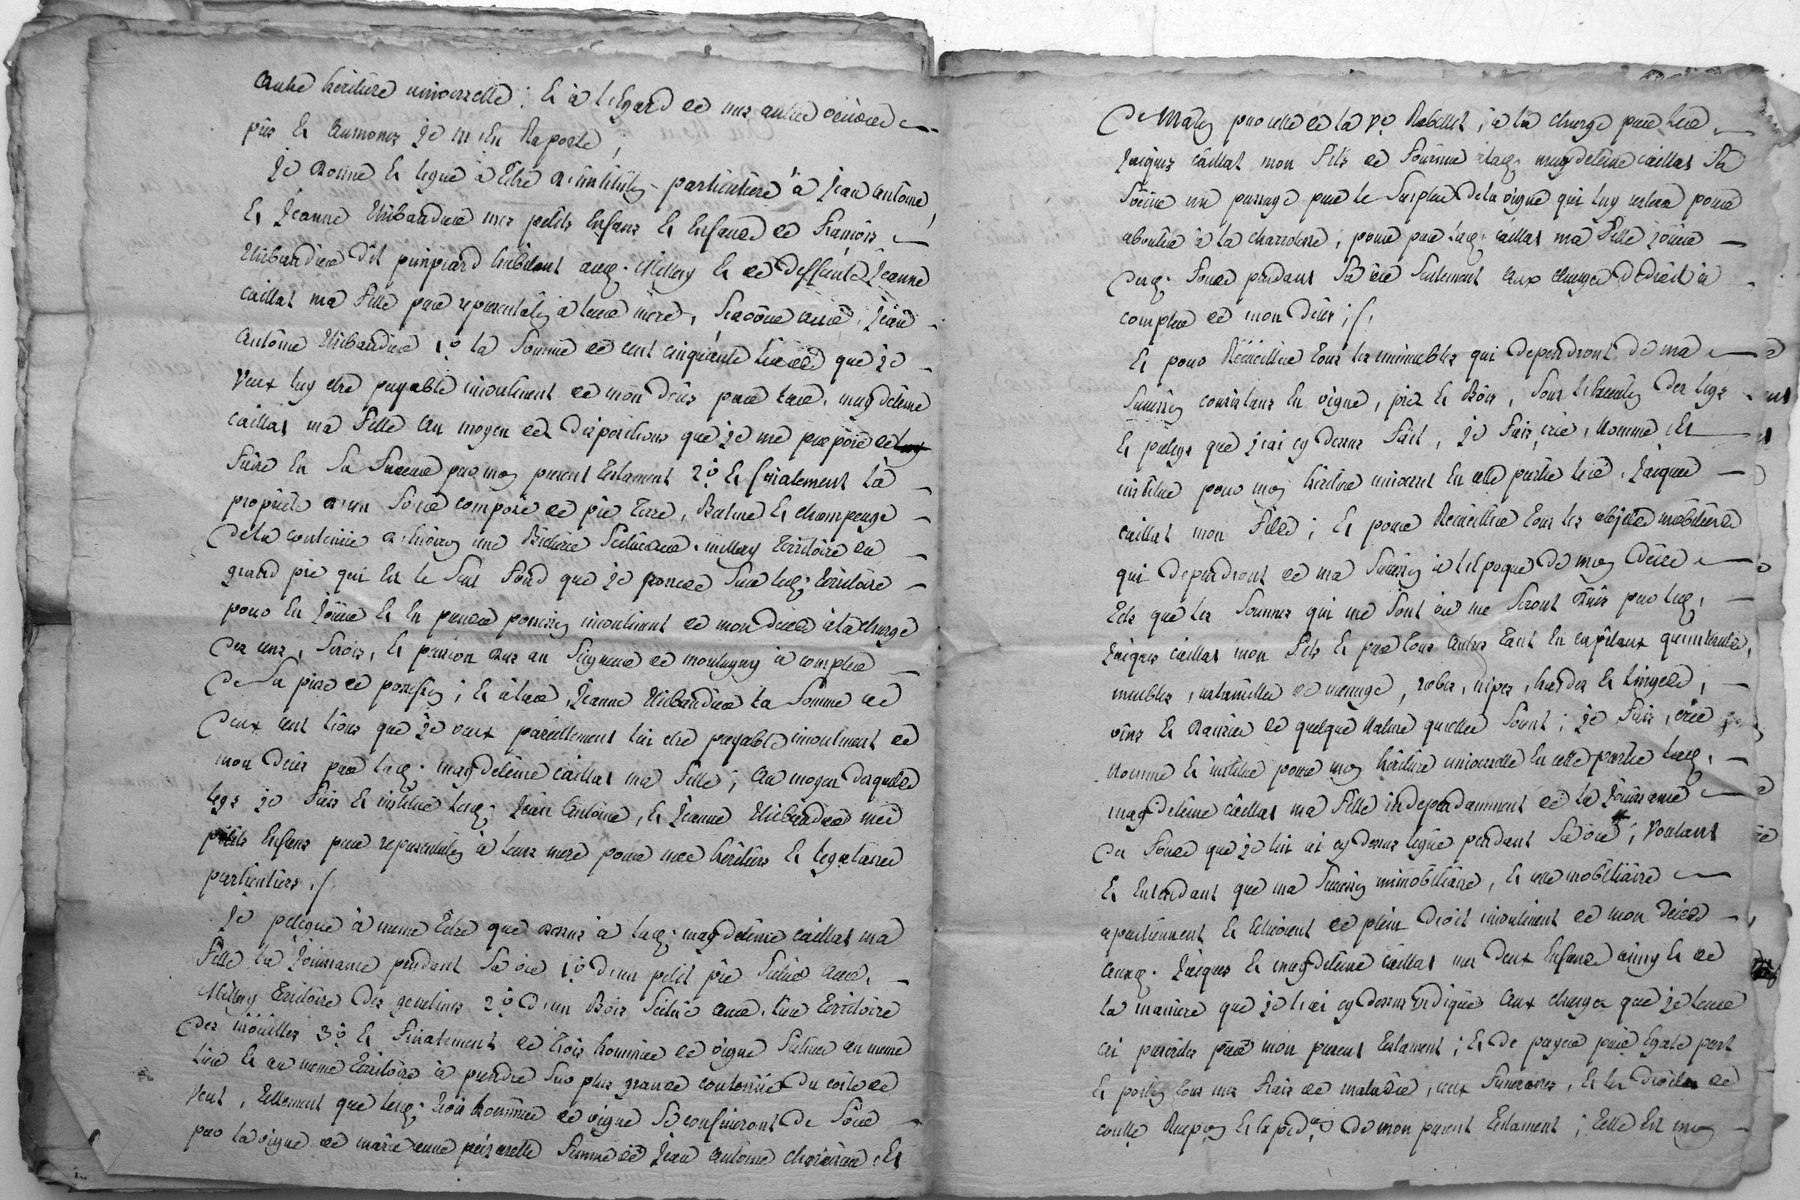 autre héritière universelle ; Et à l'Egard de mes autres œuvres
pies Et Aumones Je m'en Raporte ;
Je Donne Et legue à titre D'institution particulière à Jean antoine,
Et Jeanne thibaudier mes petits Enfans Et Enfants de François
thibaudier dit pimpiard habitant aud. Millery Et de deffunte Jeanne
caillat ma fille par representation à leur mere, Scavoir aud. Jean
Antoine thibaudier 1.º la Somme de cent cinquante livres que je
Veux luy etre payable incontinent de mon décès par lad. magdeleine
caillat ma fille au moyen des Dispositions que je me propose de
faire En Sa faveur par mon present testament 2.º Et finalement la
propriété d'un fond composé de pré terre, Balme Et champeage
De la contenue d'Environ une Bicherée Scitué aud. millery territoire du
grand pré qui Est le Seul fond que je possede Sur led. territoire
pour En Jouir Et En prendre possession incontinent de mon décès à la charge
Des cens, Servis, Et pension dus au Seigneur de montagny à compter
De Sa prise de possession ; Et à lad. Jeanne thibaudier la Somme de
Deux cent livres que je veux pareillement lui etre payable incontinent de
mon décès par lad. magdeleine caillat ma fille ; au moyen desquels
legs je fais Et institue led. Jean Antoine, Et Jeanne thibaudier mes
petits Enfans par representation à leur mere pour mes héritiers Et legataires
particuliers ./.
Je legue à meme titre que dessus à lad. magdeleine caillat ma
fille la Jouissance pendant Sa vie 1.º d'un petit pré Scitué aud.
Millery territoire des 2.º d'un Bois Scitué aud. lieu territoire
Des 3.º Et finalement de trois hommées de vigne Scituées au meme
lieu Et au meme territoire à prendre Sur plus grande contenue du coté de
Vent, tellement que lesd. trois hommées de vigne Se confineront de Soir
par la vigne de marie anne femme de Jean Antoine Et
De Matin par celle de la Vᵉ Rebillet ; à la charge par led.
Jacques caillat mon fils de fournir à lad. magdeleine caillat Sa
Sœur un passage par le Surplus de la vigne qui luy restera pour
aboutir à la charriere ; pour par lad. caillat ma fille jouir
desd. fonds pendant Sa vie Seulement aux charges de droit à
compter de mon décès ;/.
Et pour Recueillir tous les immeubles qui dependront de ma
Succession consistans En vigne, prés Et Bois, Sous la Reserve des legs
Et prelegs que j'ai cy dessus fait, je fais, crée, nomme Et
institue pour mon héritier universel En cette partie led. Jacques
caillat mon fils ; Et pour Recueillir tous les objets mobiliers
qui dependront de ma Succession à l'Epoque de mon décès
tels que les Sommes qui me Sont ou me Seront dües par led.
Jacques caillat mon fils Et par tous autres tant En capitaux qu'interets,
meubles, ustancilles de menage, robes, nipes, hardes Et linges,
vins Et danrées de quelque nature qu'elles Soient ; je fais, crée
nomme Et institue pour mon héritiere universelle En cette partie lad.
magdeleine caillat ma fille independamment de la Jouissance
Des fonds que je lui ai cy dessus legué pendant Sa vie ; Voulant
Et Entendant que ma Succession immobiliaire, Et celle mobiliaire
apartiennent Et Echoient de plein droit incontinent de mon décès
auxd. Jacques Et magdeleine caillat mes deux Enfans ainsy Et de
la maniere que je l'ai cy dessus indiqué aux charges que je leur
ai par mon present testament ; Et de payer par Egale part
Et portion tous mes frais de maladie, ceux funeraires, Et les droits de
controlle Reception Et Expedᵒⁿ de mon present testament ; telle Est mon